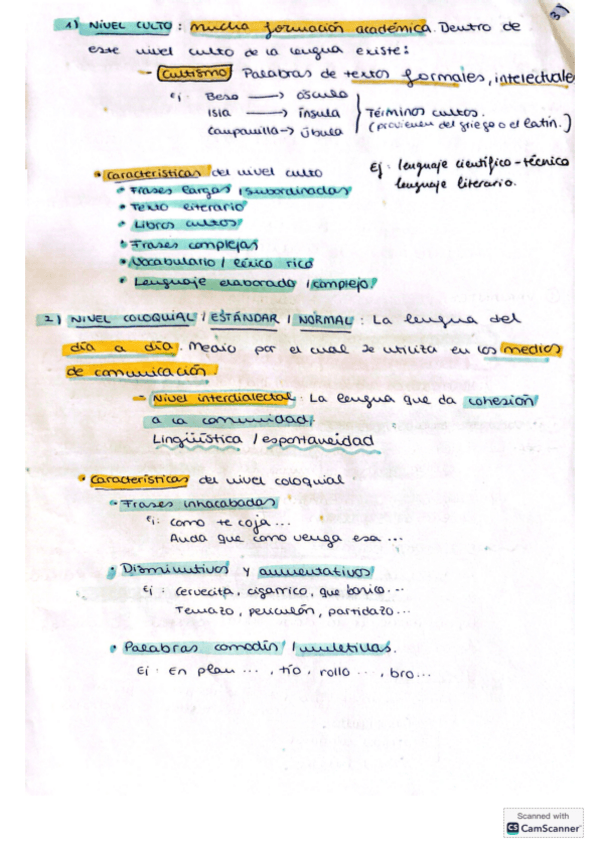 3)
1) NIVEL CULTO : mucha formación académica. Dentro de
este nivel culto de la lengua existe:
- Cultismo Palabras de textos formales, intelectuale
Ej. Beso → ósculo
Isla → ínsula
Campanilla → úbula
Términos cultos.
(provienen del griego o el latín.)
• Características del nivel culto
Ej: lenguaje científico-técnico
lenguaje literario.
• Frases largas / subordinadas
• Texto literario
• Libros cultos
• Frases complejas
• Vocabulario / léxico rico
• Lenguaje elaborado / complejo
2) NIVEL COLOQUIAL / ESTÁNDAR / NORMAL : La lengua del
día a día. Medio por el cual se utiliza en los medios
de comunicación.
- Nivel interdialectal. La lengua que da cohesión
a la comunidad,
Lingüística / espontaneidad
• Características del nivel coloquial.
• Frases inhacabadas
Ej: como te coja ...
Anda que como venga esa ...
• Disminutivos y aumentativos
Ej: cervecita, cigarrico, que bonico...
Temazo, peliculón, partidazo...
• Palabras comodín / muletillas.
Ej: En plan ..., tío, rollo ..., bro...
Scanned with
CS CamScanner